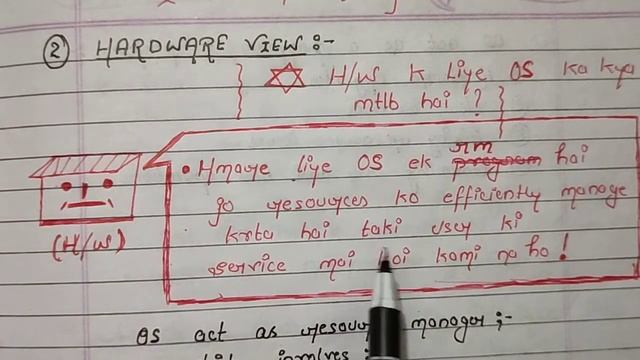 ② HARDWARE VIEW :-
H/W K Liye OS ka kya
mtlb hai ?
• Hmare liye OS ek rm hai
jo resources ko efficiently manage
krta hai taki user ki
service mai koi kami na ho !
(H/W)
OS act as manager ;-